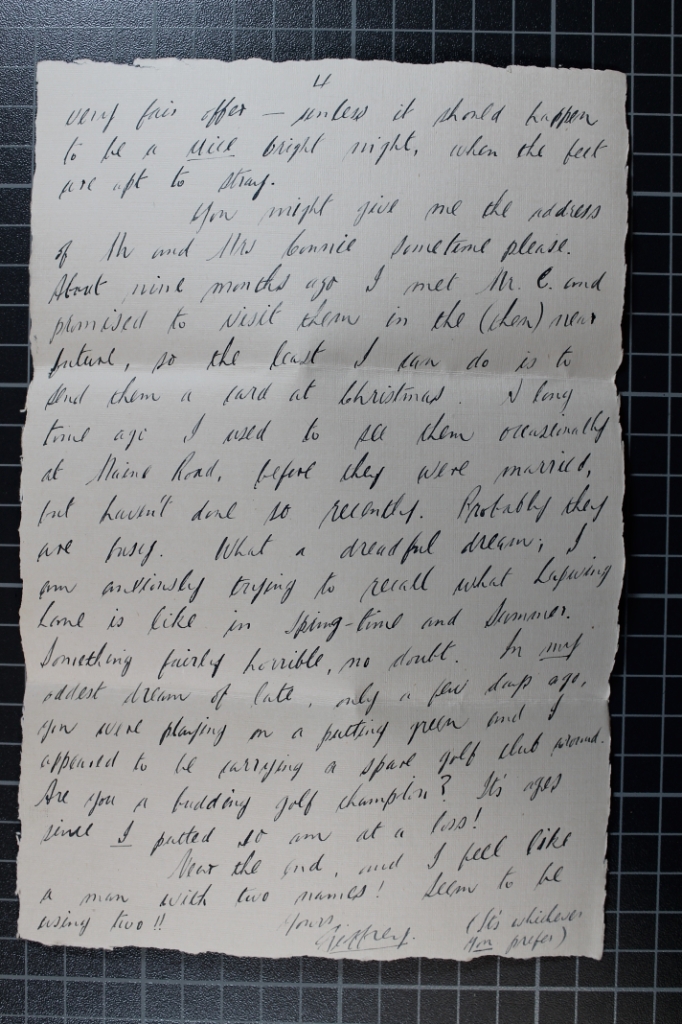 4
very fair offer — unless it should happen
to be a nice bright night, when the feet
are apt to stray.
You might give me the address
of Mr and Mrs Connie sometime please.
About nine months ago I met Mr. C. and
promised to visit them in the (then) near
future, so the least I can do is to
send them a card at Christmas. A long
time ago I used to see them occasionally
at Maine Road, before they were married,
but haven't done so recently. Probably they
are busy. What a dreadful dream; I
am anxiously trying to recall what Lapwing
Lane is like in Spring-time and Summer.
Something fairly horrible, no doubt. In my
oddest dream of late, only a few days ago,
you were playing on a putting green and I
appeared to be carrying a spare golf club around.
Are you a budding golf champion? It's ages
since I putted so am at a loss!
Near the end, and I feel like
a man with two names! Seem to be
using two!!
Yours,
Geoffrey.
(It's whichever
you prefer)